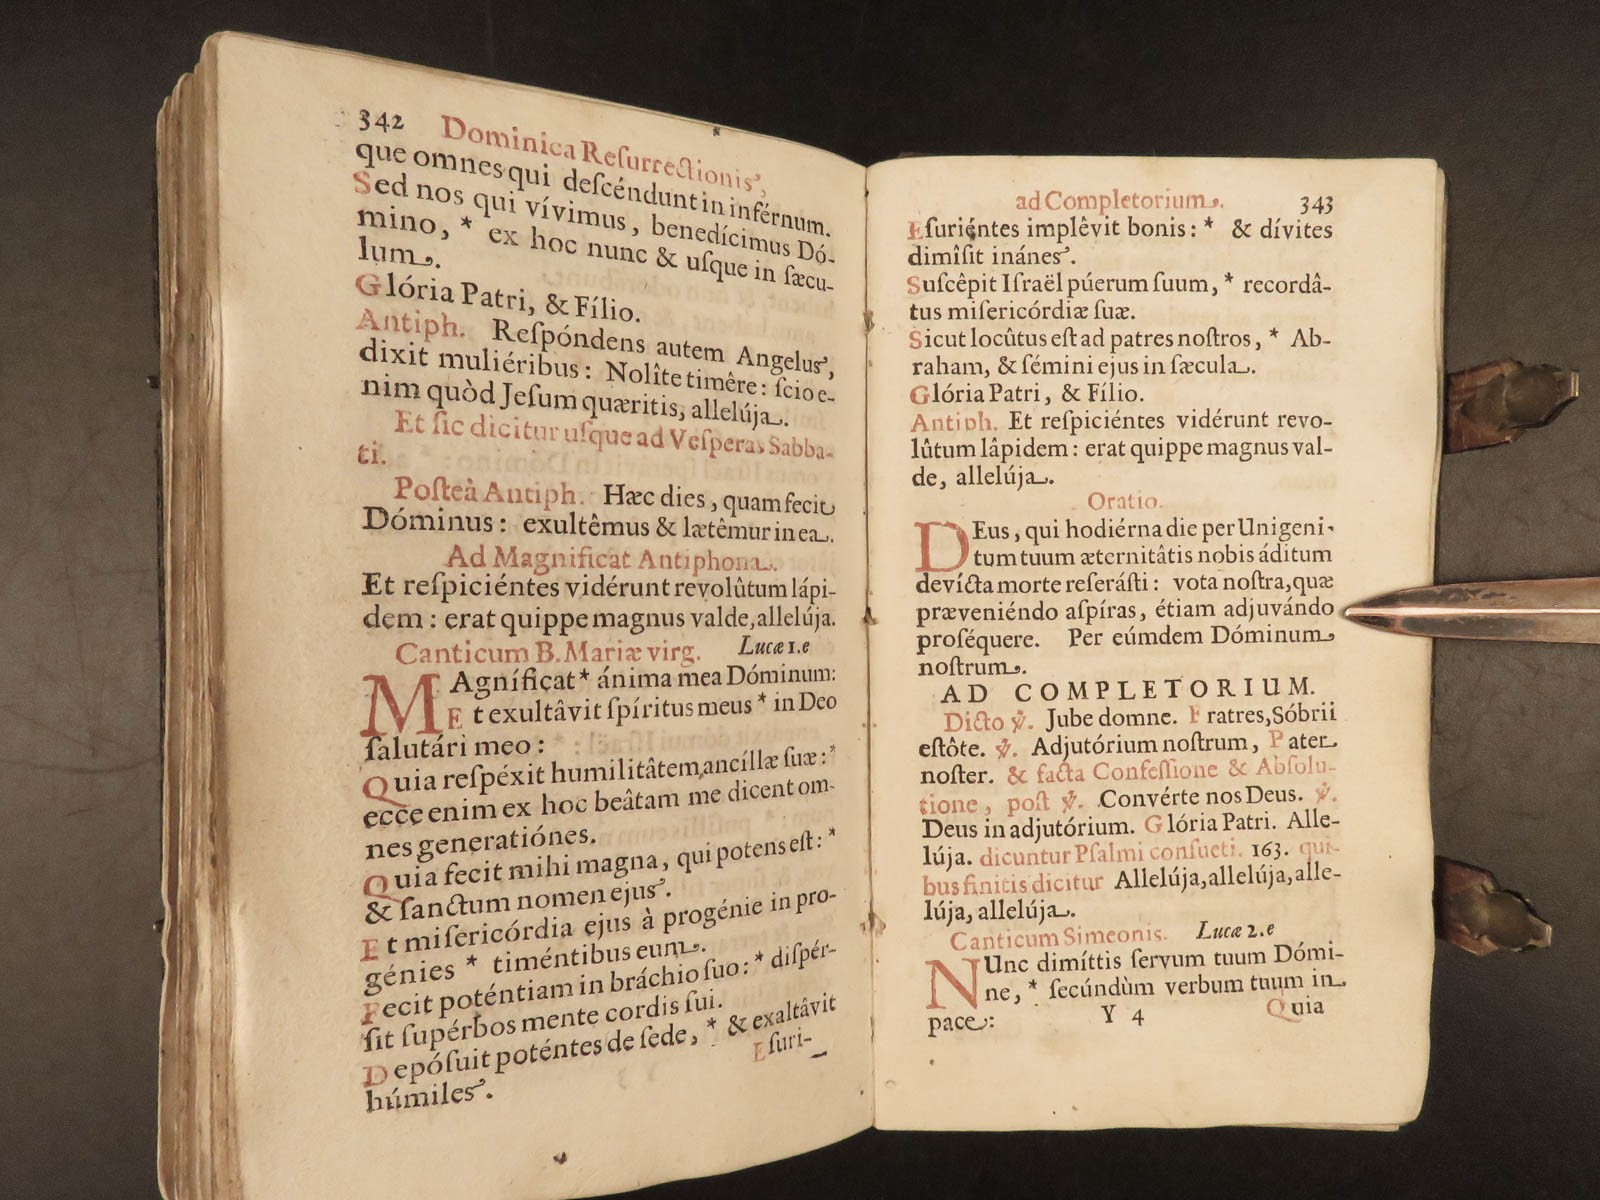 342 Dominica Reſurrectionis,
que omnes qui deſcéndunt in inférnum.
Sed nos qui vívimus, benedícimus Dó-
mino, * ex hoc nunc & uſque in ſæcu-
lum.
Glória Patri, & Fílio.
Antiph. Reſpóndens autem Angelus,
dixit muliéribus: Nolîte timêre: ſcio e-
nim quòd Jeſum quæritis, allelúja.
Et ſic dicitur uſque ad Veſperas Sabba-
ti.
Poſteà Antiph. Hæc dies, quam fecit
Dóminus: exultêmus & lætêmur in ea.
Ad Magnificat Antiphona.
Et reſpiciéntes vidérunt revolûtum lápi-
dem: erat quippe magnus valde, allelúja.
Canticum B. Mariæ virg. Lucæ 1.e
MAgníficat * ánima mea Dóminum:
Et exultâvit ſpíritus meus * in Deo
ſalutári meo:
Quia reſpéxit humilitâtem ancíllæ ſuæ: *
ecce enim ex hoc beâtam me dicent om-
nes generatiónes.
Quia fecit mihi magna, qui potens eſt: *
& ſanctum nomen ejus.
Et miſericórdia ejus à progénie in pro-
génies * timéntibus eum.
Fecit poténtiam in bráchio ſuo: * diſpér-
ſit ſupérbos mente cordis ſui.
Depóſuit poténtes de ſede, * & exaltâvit
húmiles.
Eſuri-
ad Completorium. 343
Eſuriéntes implêvit bonis: * & dívites
dimîſit inánes.
Suſcêpit Iſraël púerum ſuum, * recordâ-
tus miſericórdiæ ſuæ.
Sicut locûtus eſt ad patres noſtros, * Ab-
raham, & ſémini ejus in ſæcula.
Glória Patri, & Fílio.
Antiph. Et reſpiciéntes vidérunt revo-
lûtum lâpidem: erat quippe magnus val-
de, allelúja.
Oratio.
DEus, qui hodiérna die per Unigeni-
tum tuum æternitâtis nobis áditum
devícta morte reſeráſti: vota noſtra, quæ
præveniéndo aſpíras, étiam adjuvándo
proſéquere. Per eúmdem Dóminum
noſtrum.
AD COMPLETORIUM.
Dicto ℣. Jube domne. Fratres, Sóbrii
eſtôte. ℣. Adjutórium noſtrum, Pater
noſter. & facta Confeſſione & Abſolu-
tione, poſt ℣. Convérte nos Deus. ℣.
Deus in adjutórium. Glória Patri. Alle-
lúja. dicuntur Pſalmi conſueti. 163. qui-
bus finitis dicitur Allelúja, allelúja, alle-
lúja, allelúja.
Canticum Simeonis. Lucæ 2.e
NUnc dimíttis ſervum tuum Dómi-
ne, * ſecúndùm verbum tuum in
pace:
Y 4 Quia